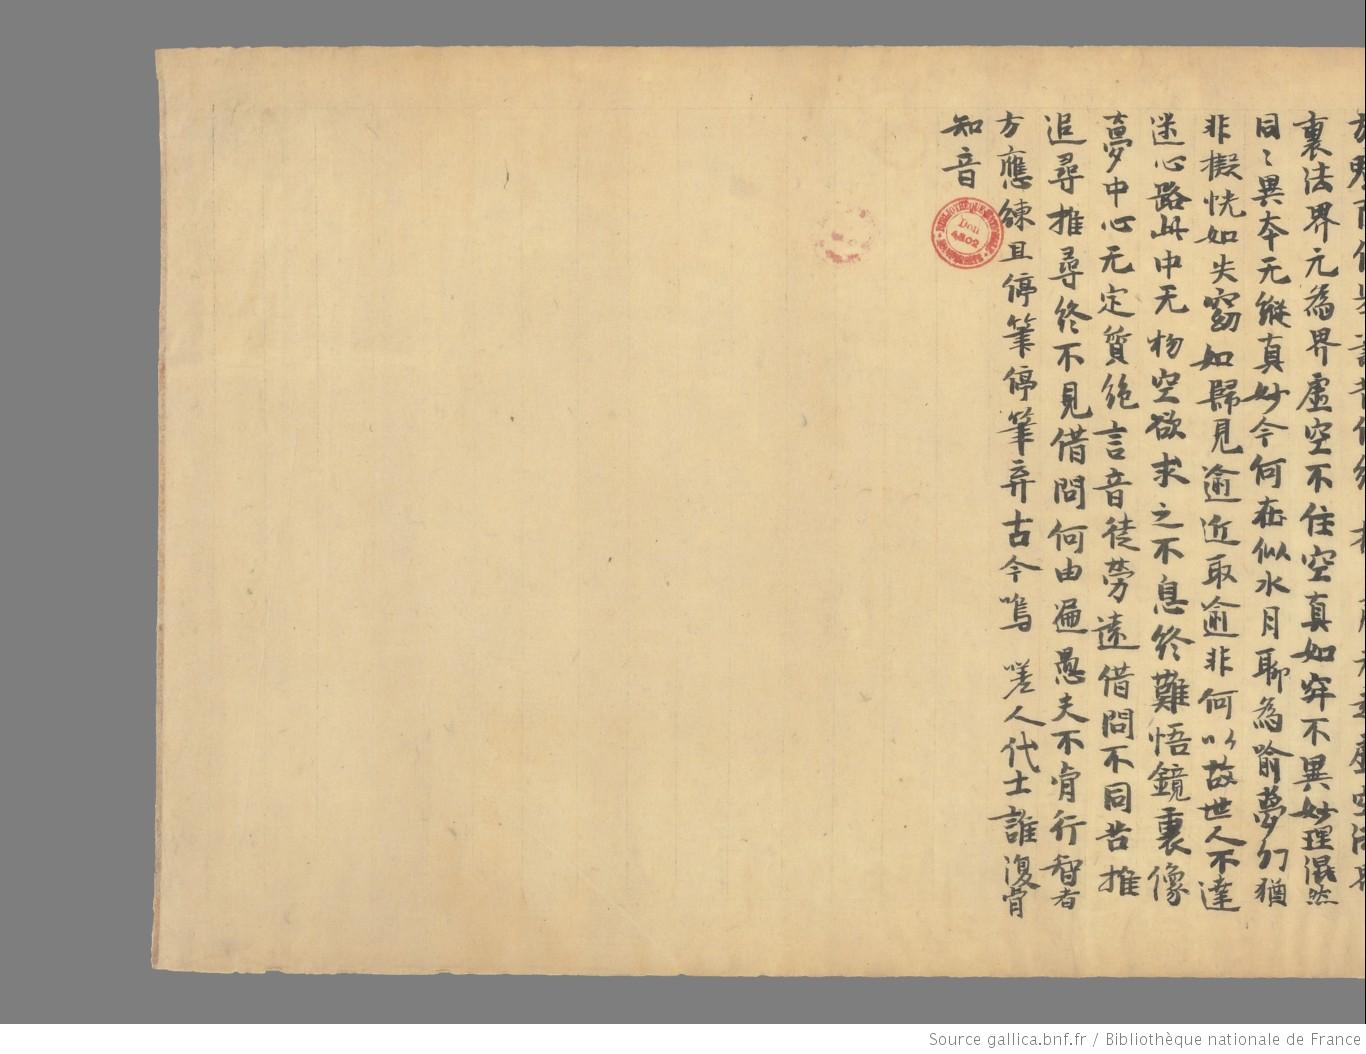 裏法界元為界虛空不住空真如穽不異妙理混然
同〻異夲无縱真妙今何在似水月聊為喻夢幻猶
非擬恍如失窈如歸見逾近取逾非何以故世人不達
迷心路此中无物空欲求之不息終難悟鏡裏像
夢中心无定質絶言音徒勞遠借問不同苦推
追尋推尋終不見借問何由遍愚夫不肯行智者
方應練且停筆停筆弃古今嗚嗟人代士誰復肯
知音
BIBLIOTHÈQUE NATIONALE
Don
4802
Source gallica.bnf.fr / Bibliothèque nationale de France